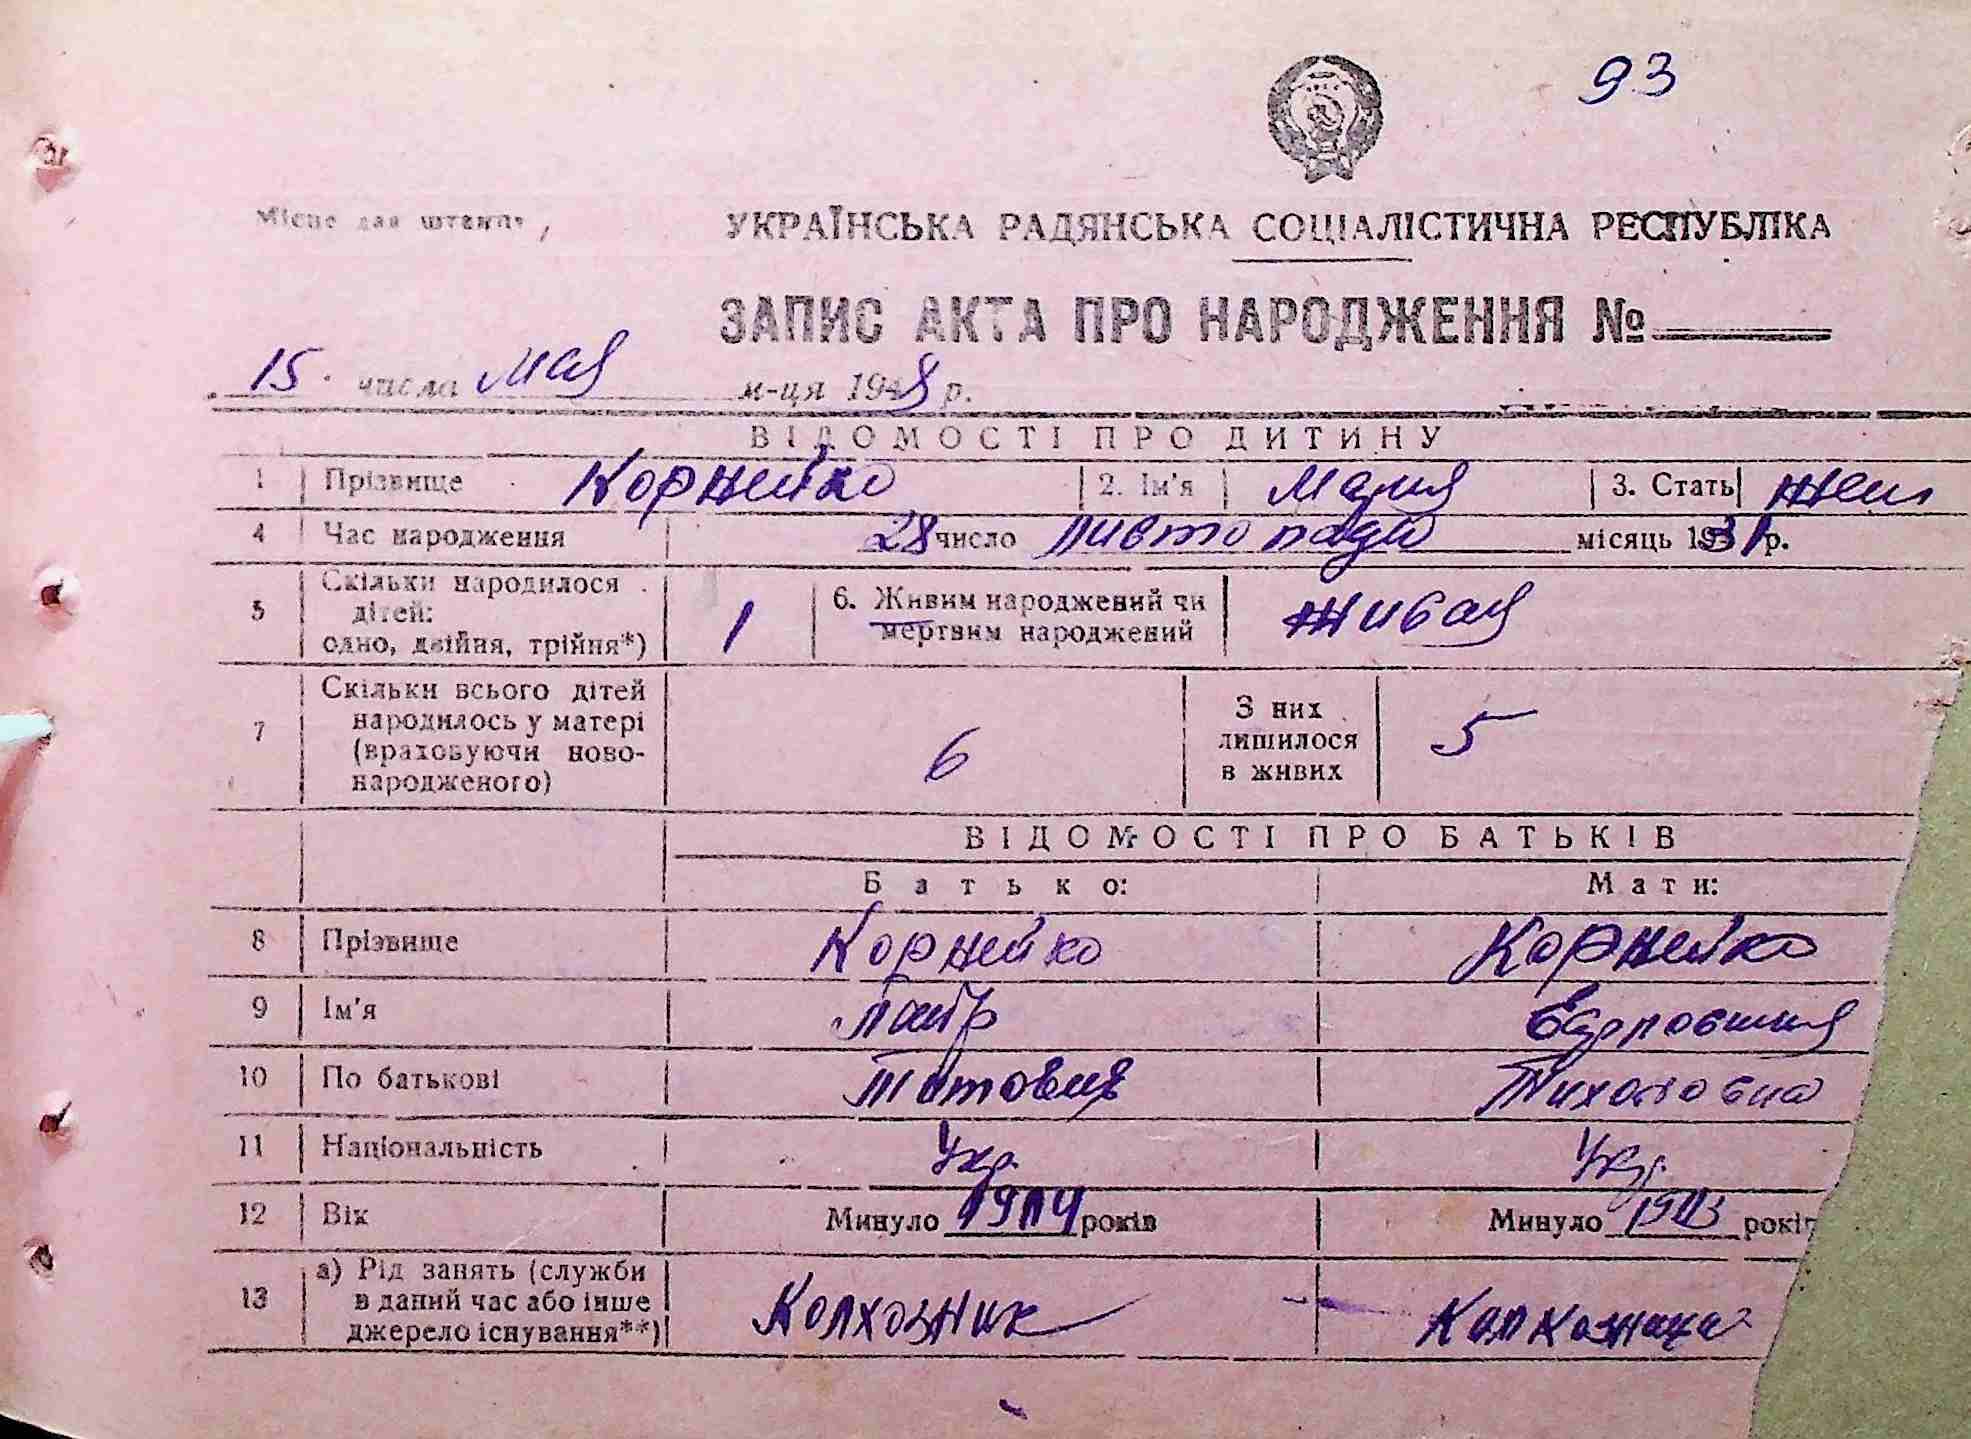 93
Місце для штампу
УКРАЇНСЬКА РАДЯНСЬКА СОЦІАЛІСТИЧНА РЕСПУБЛІКА
ЗАПИС АКТА ПРО НАРОДЖЕННЯ №
15 числа мая м-ця 1948 р.
ВІДОМОСТІ ПРО ДИТИНУ
1 Прізвище Корнейко 2. Ім'я Мария 3. Стать жен
4 Час народження 28 число листопада місяць 1931 р.
5 Скільки народилося дітей: одно, двійня, трійня*) 1 6. Живим народжений чи мертвим народжений живая
7 Скільки всього дітей народилось у матері (враховуючи ново-народженого) 6 З них лишилося в живих 5
ВІДОМОСТІ ПРО БАТЬКІВ
Батько: Мати:
8 Прізвище Корнейко Корнейко
9 Ім'я
10 По батькові Титович Тихоновна
11 Національність Укр. Укр.
12 Вік Минуло років Минуло 1903 років
13 а) Рід занять (служби в даний час або інше джерело існування**) Колхозник Колхозница